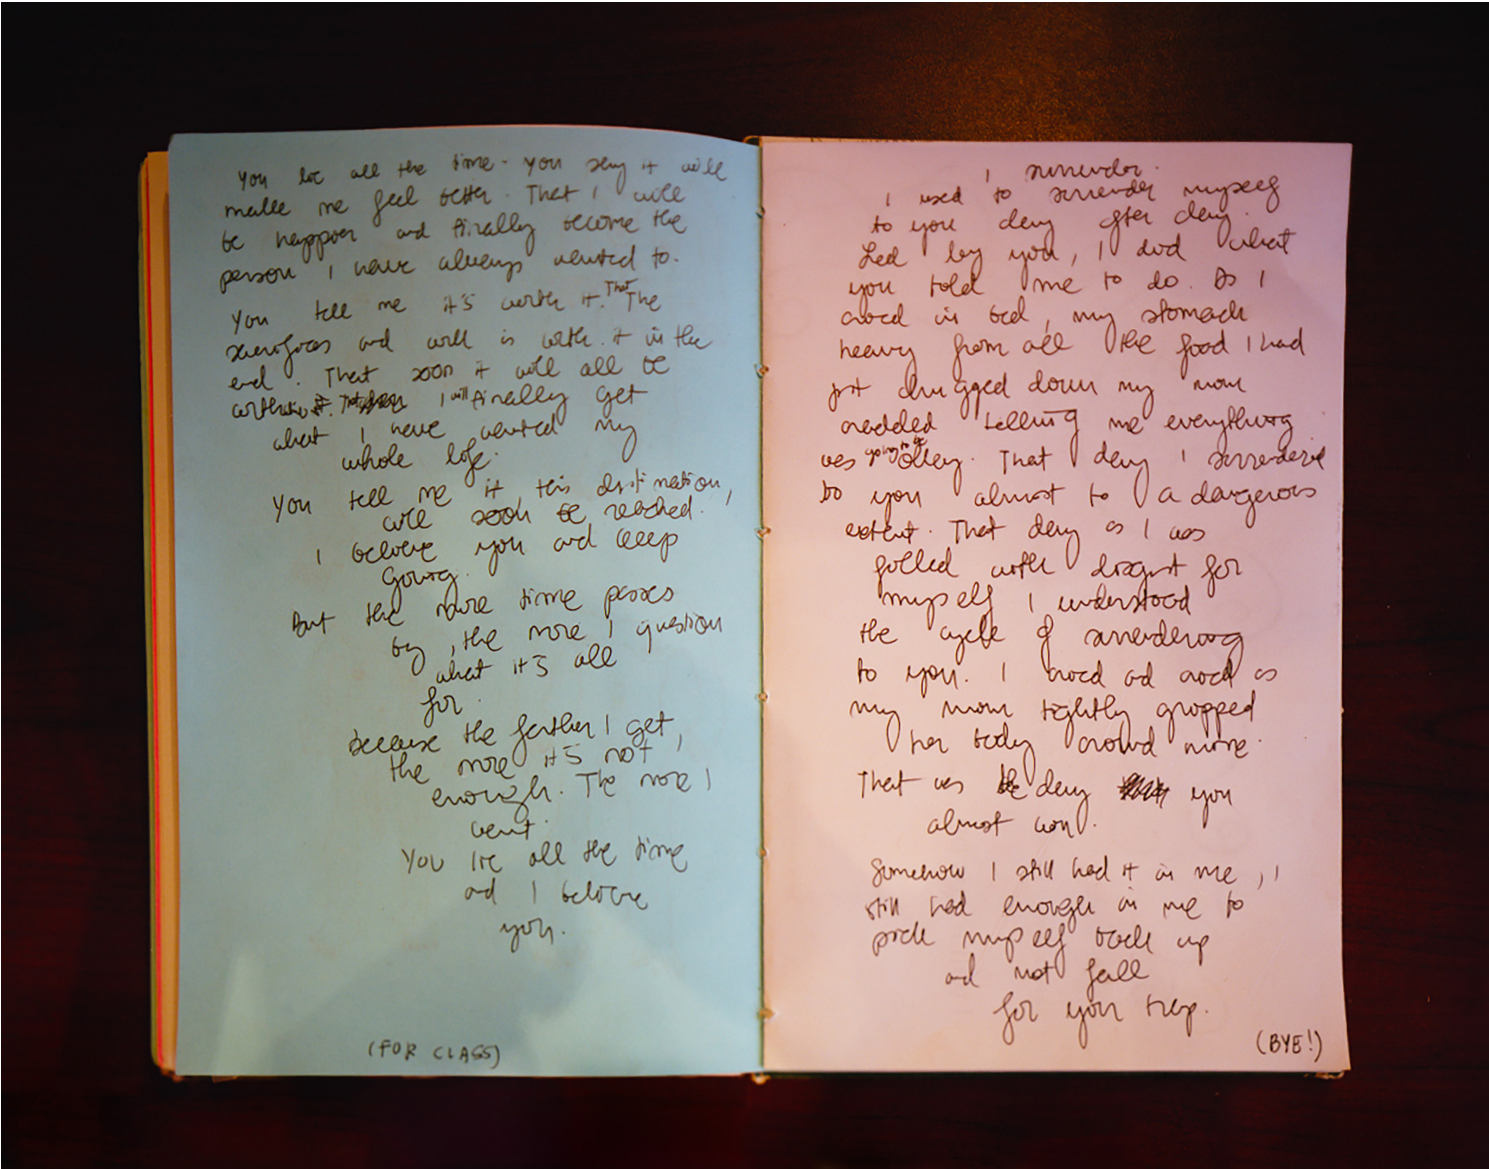 You lie all the time. You say it will
make me feel better. That I will
be happier and finally become the
person I have always wanted to.
You tell me it's worth it. That The
sacrifices and will is worth it in the
end. That soon it will all be
worth I will finally get
what I have wanted my
whole life.
You tell me it, this destination,
will soon be reached.
I believe you and keep
going.
But the more time passes
by, the more I question
what it's all
for.
because the farther I get,
the more it's not
enough. The more I
want.
You lie all the time
and I believe
you.
(FOR CLASS)
I surrender.
I used to surrender myself
to you day after day.
Led by you, I did what
you told me to do. As I
cried in bed, my stomach
heavy from all the food I had
just chugged down my mom
cradled telling me everything
was going to be okay. That day I surrendered
to you almost to a dangerous
extent. That day as I was
filled with disgust for
myself I understood
the cycle of surrendering
to you. I cried and cried as
my mom tightly gripped
her body around mine.
That was the day you
almost won.
Somehow I still had it in me, I
still had enough in me to
pick myself back up
and not fall
for your trap.
(BYE!)